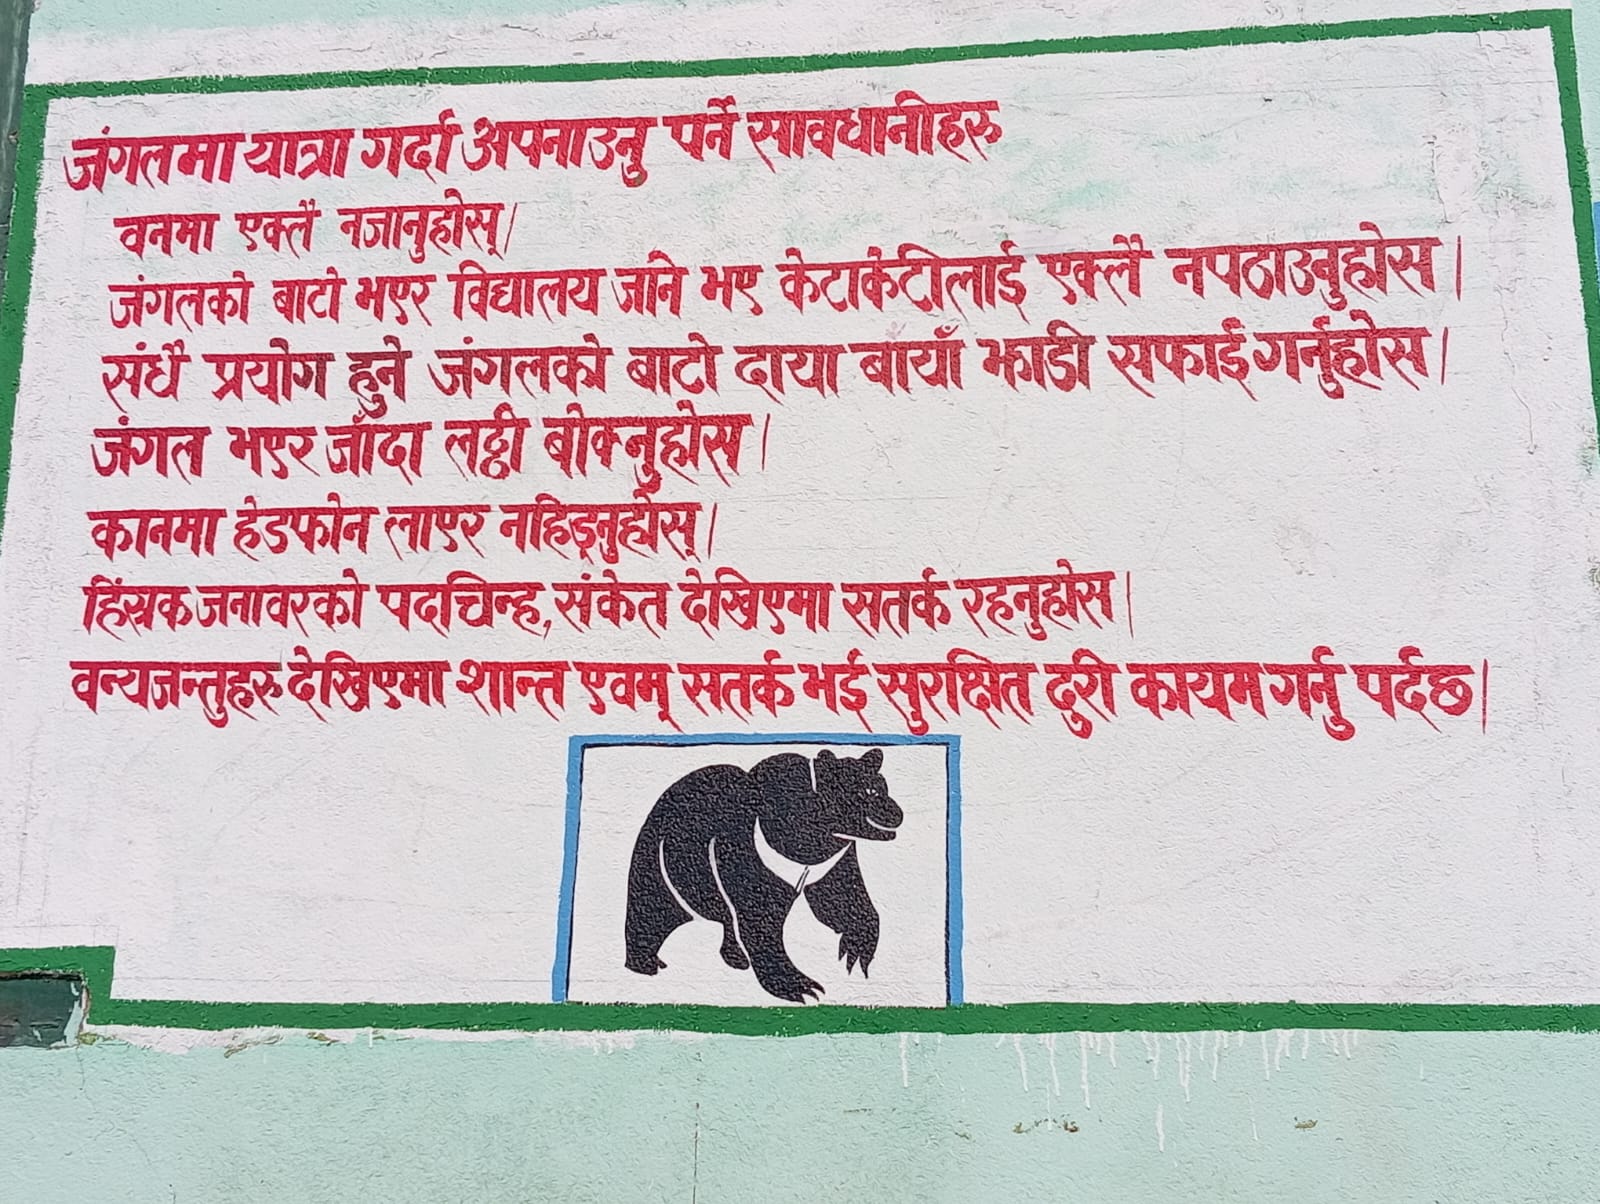 जंगलमा यात्रा गर्दा अपनाउनु पर्ने सावधानीहरु
वनमा एक्लै नजानुहोस्।
जंगलको बाटो भएर विद्यालय जाने भए केटाकेटीलाई एक्लै नपठाउनुहोस।
संधै प्रयोग हुने जंगलको बाटो दाया बायाँ झाडी सफाई गर्नुहोस।
जंगल भएर जाँदा लट्ठी बोक्नुहोस।
कानमा हेडफोन लाएर नहिड्नुहोस्।
हिंस्रक जनावरको पदचिन्ह, संकेत देखिएमा सतर्क रहनुहोस।
वन्यजन्तुहरु देखिएमा शान्त एवम् सतर्क भई सुरक्षित दुरी कायम गर्नु पर्दछ।